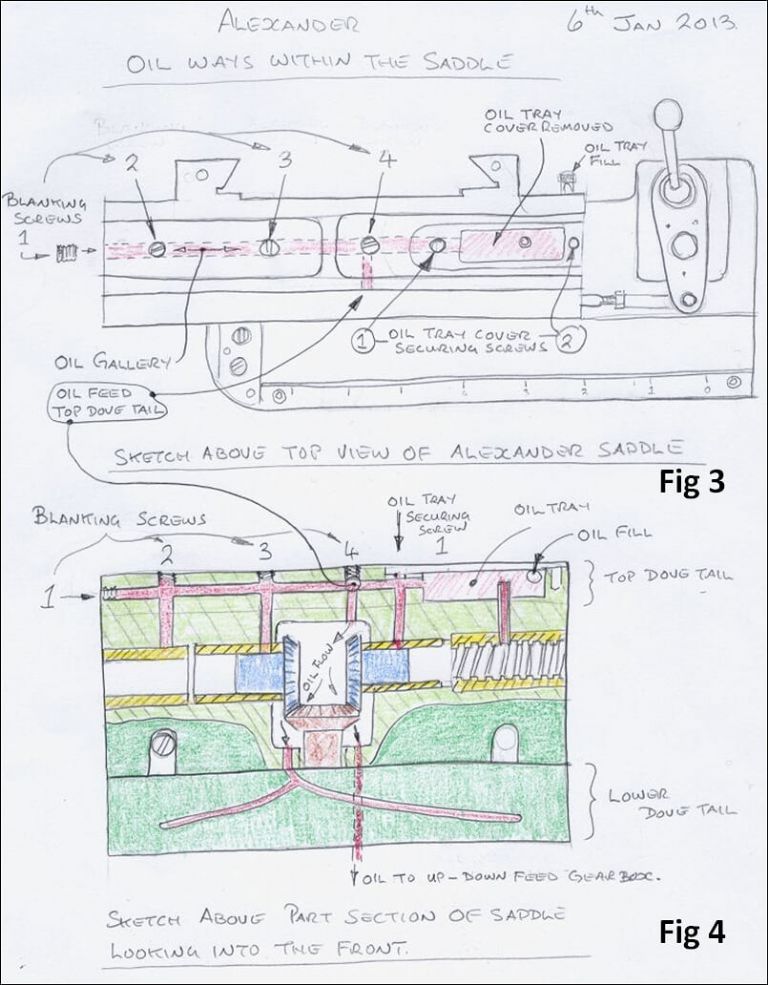 ALEXANDER
6th JAN 2013.
OIL WAYS WITHIN THE SADDLE
OIL TRAY
COVER REMOVED
OIL TRAY
FILL
2
3
4
BLANKING
SCREWS
1
OIL GALLERY
1 OIL TRAY COVER 2
SECURING SCREWS
OIL FEED
TOP DOVE TAIL
3
2
1
0
SKETCH ABOVE TOP VIEW OF ALEXANDER SADDLE
Fig 3
BLANKING SCREWS
OIL TRAY
SECURING
SCREW
1
OIL TRAY
OIL FILL
2
3
4
1
TOP DOVE TAIL
OIL FLOW
LOWER
DOVE TAIL
OIL TO UP-DOWN FEED GEAR BOX.
SKETCH ABOVE PART SECTION OF SADDLE
LOOKING INTO THE FRONT.
Fig 4